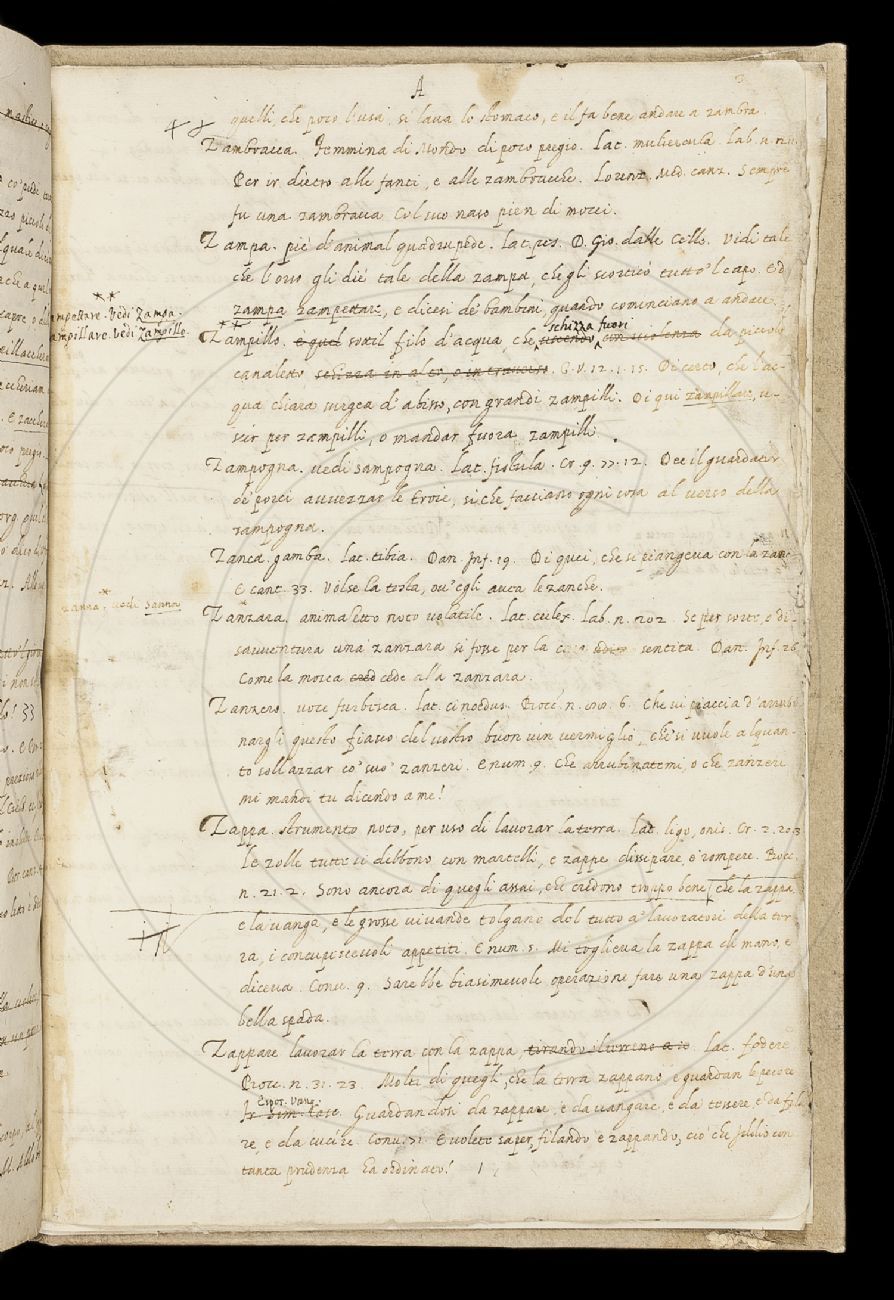 A
quelli, che poco l'usa, si laua lo stomaco, e il fa bene andare a zambra.
Zambracca. Femmina di Mondo di poco pregio. Lat. muliercula. Lab. n.
Per ir dietro alle fanti, e alle zambracche. Lorenz. Med. canz. Sempre
fu una zambracca Col suo naso pien di mocci.
Zampa. piè d'animal quadrupede. Lat. pes. D. Gio. dalle Celle. Vidi tale
che l'orso gli diè tale della zampa, che gli scorticò tutto 'l capo. Ed
zampa zampettare, e dicesi de' bambini, quando cominciano a andare.
mpettare. Vedi Zampa.
ampillare. vedi Zampillo.
Zampillo. è quel sottil filo d'acqua, che uscendo schizza fuori con violenza da picciolo
canaletto schizza in alto, o in trauerso. G. V. 12. 1. 15. Di certo, che l'ac-
qua chiara surgea d'abisso, con grandi zampilli. Di qui zampillare, u-
scir per zampilli, o mandar fuora zampilli.
Zampogna. uedi sampogna. Lat. fistula. Cr. 9. 77. 12. Dee il guardator
de' porci auuezzar le troie, si che facciano ogni cosa al uerso della
sampogna.
Zanca. gamba. Lat. tibia. Dan. Inf. 19. Di quei, che si piangeua con la zanc-
E cant. 33. Volse la testa, ou' egli auea le zanche.
zanna. uedi sanna
Zanzara. animaletto noto uolatile. Lat. culex. Lab. n. 202. Se per sorte, o di-
sauuentura una zanzara si fosse per la casa sentita. Dan. Inf. 26.
Come la mosca cede alla zanzara.
Zanzero. uoce furbesca. Lat. cinoedus. Bocc. n. 6. Che ui piaccia d'arrubi
nargli questo fiasco del uostro buon uin uermiglio, che si uuole alquan-
to sollazzar co' suo' zanzeri. E num. 9. Che arrubinatemi, o che zanzeri
mi mandi tu dicendo a me!
Zappa. strumento noto, per uso di lauorar la terra. Lat. ligo, onis. Cr. 2.
Le zolle tutte si debbono con martelli, e zappe dissipare, e rompere. Bocc.
n. 21. 2. Sono ancora di quegli assai, che credono troppo bene, che la zappa,
e la uanga, e le grosse uiuande tolgano del tutto a' lauoratori della ter-
ra, i concupisceuoli appetiti. E num. 5. Mi toglieua la zappa di mano, e
diceua. Conu. 9. Sarebbe biasimeuole operazione fare una zappa d'una
bella spada.
Zappare lauorar la terra con la zappa. Lat. fodere
Bocc. n. 31. 23. Molti di quegli, che la terra zappano, e guardan le pecore
Espos. Vang. Guardandosi da zappare, e da uangare, e da tessere, e da fila
re, e da cucire. Conu. 71. E uolete saper, filando e zappando, ciò che Iddio con
tanta prudenza ha ordinato!